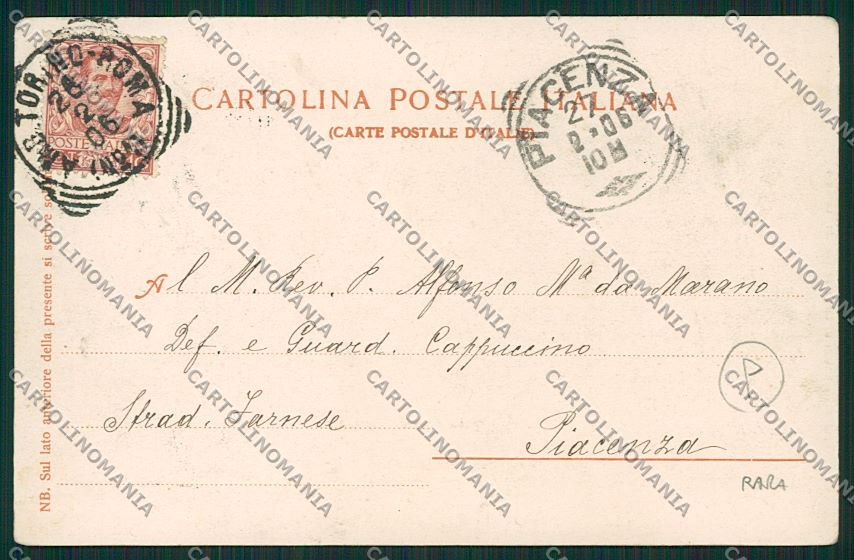 CARTOLINA POSTALE ITALIANA
(CARTE POSTALE D'ITALIE)
TORINO-ROMA
26
2
06
AMB.
POSTE ITALIANE
PIACENZA
27
2·06
10M
Al M. Rev. P. Alfonso Mª da Marano
Def. e Guard. Cappuccino
Strad. Farnese
Piacenza
NB. Sul lato anteriore della presente si scrive
RARA
CARTOLINOMANIA